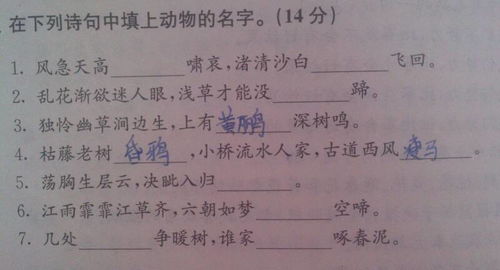 在下列诗句中填上动物的名字。(14分)
1. 风急天高______啸哀,渚清沙白______飞回。
2. 乱花渐欲迷人眼,浅草才能没______蹄。
3. 独怜幽草涧边生,上有黄鹂深树鸣。
4. 枯藤老树昏鸦,小桥流水人家,古道西风瘦马。
5. 荡胸生层云,决眦入归______。
6. 江雨霏霏江草齐,六朝如梦______空啼。
7. 几处______争暖树,谁家______啄春泥。